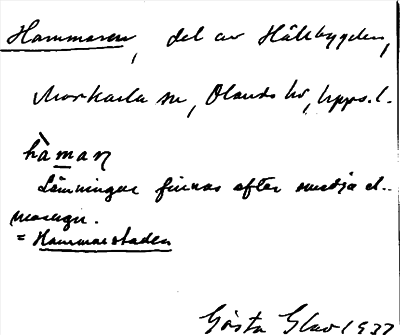 Hammaren, del av Hållbygden,
Morkarla sn, Olands hd, Upps. l.
hàmaɳ
Lämningar finnas efter smedja el.
masugn.
= Hammarstaden
Gösta Glav 1937